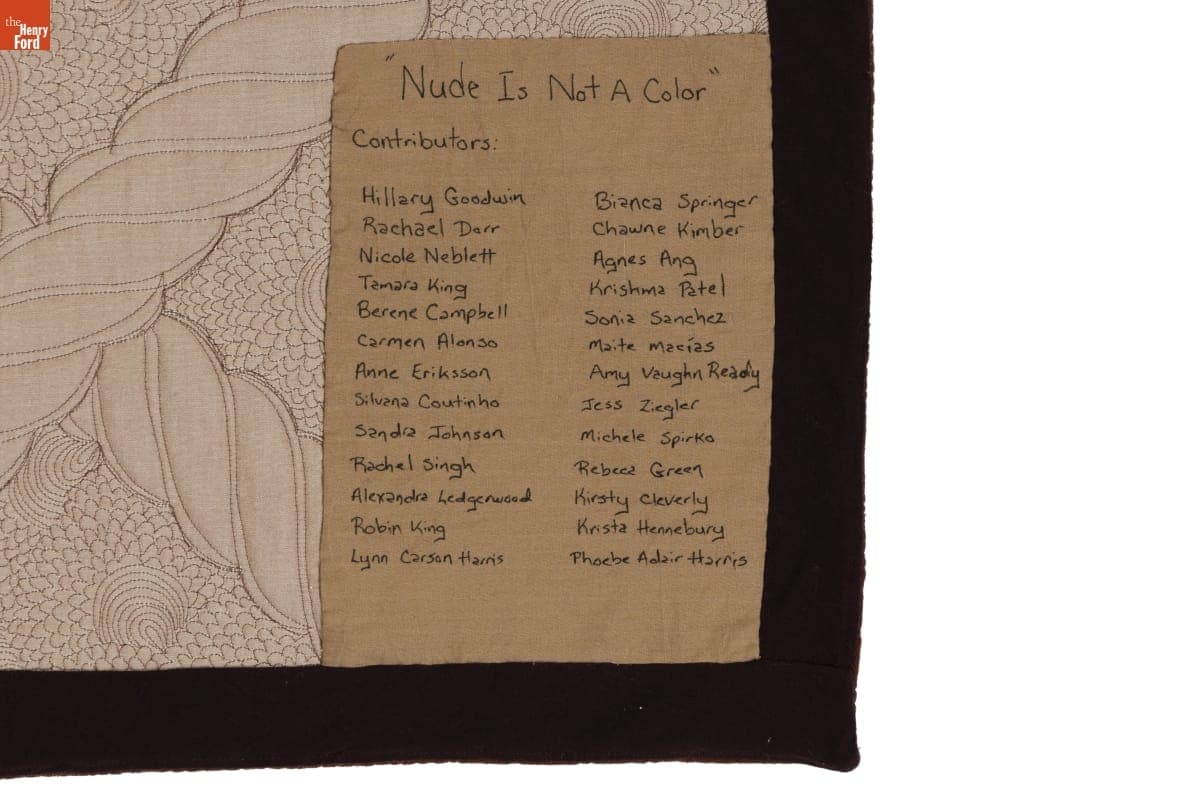 the
Henry
Ford
"Nude Is Not A Color"
Contributors:
Hillary Goodwin
Rachael Dorr
Nicole Neblett
Tamara King
Berene Campbell
Carmen Alonso
Anne Eriksson
Silvana Coutinho
Sandra Johnson
Rachel Singh
Alexandra Ledgerwood
Robin King
Lynn Carson Harris
Bianca Springer
Chawne Kimber
Agnes Ang
Krishma Patel
Sonia Sanchez
Maite Macías
Amy Vaughn Ready
Jess Ziegler
Michele Spirko
Rebeca Green
Kirsty Cleverly
Krista Hennebury
Phoebe Adair Harris